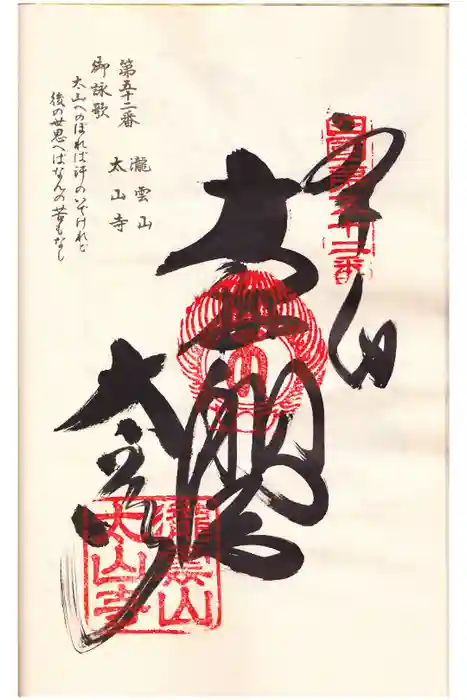 第五十二番
瀧雲山
太山寺
御詠歌
太山へのぼれば汗のいでけれど
後の世思へばなんの苦もなし
奉
四国第五十二番
大悲閣
太山寺
瀧雲山
太山寺